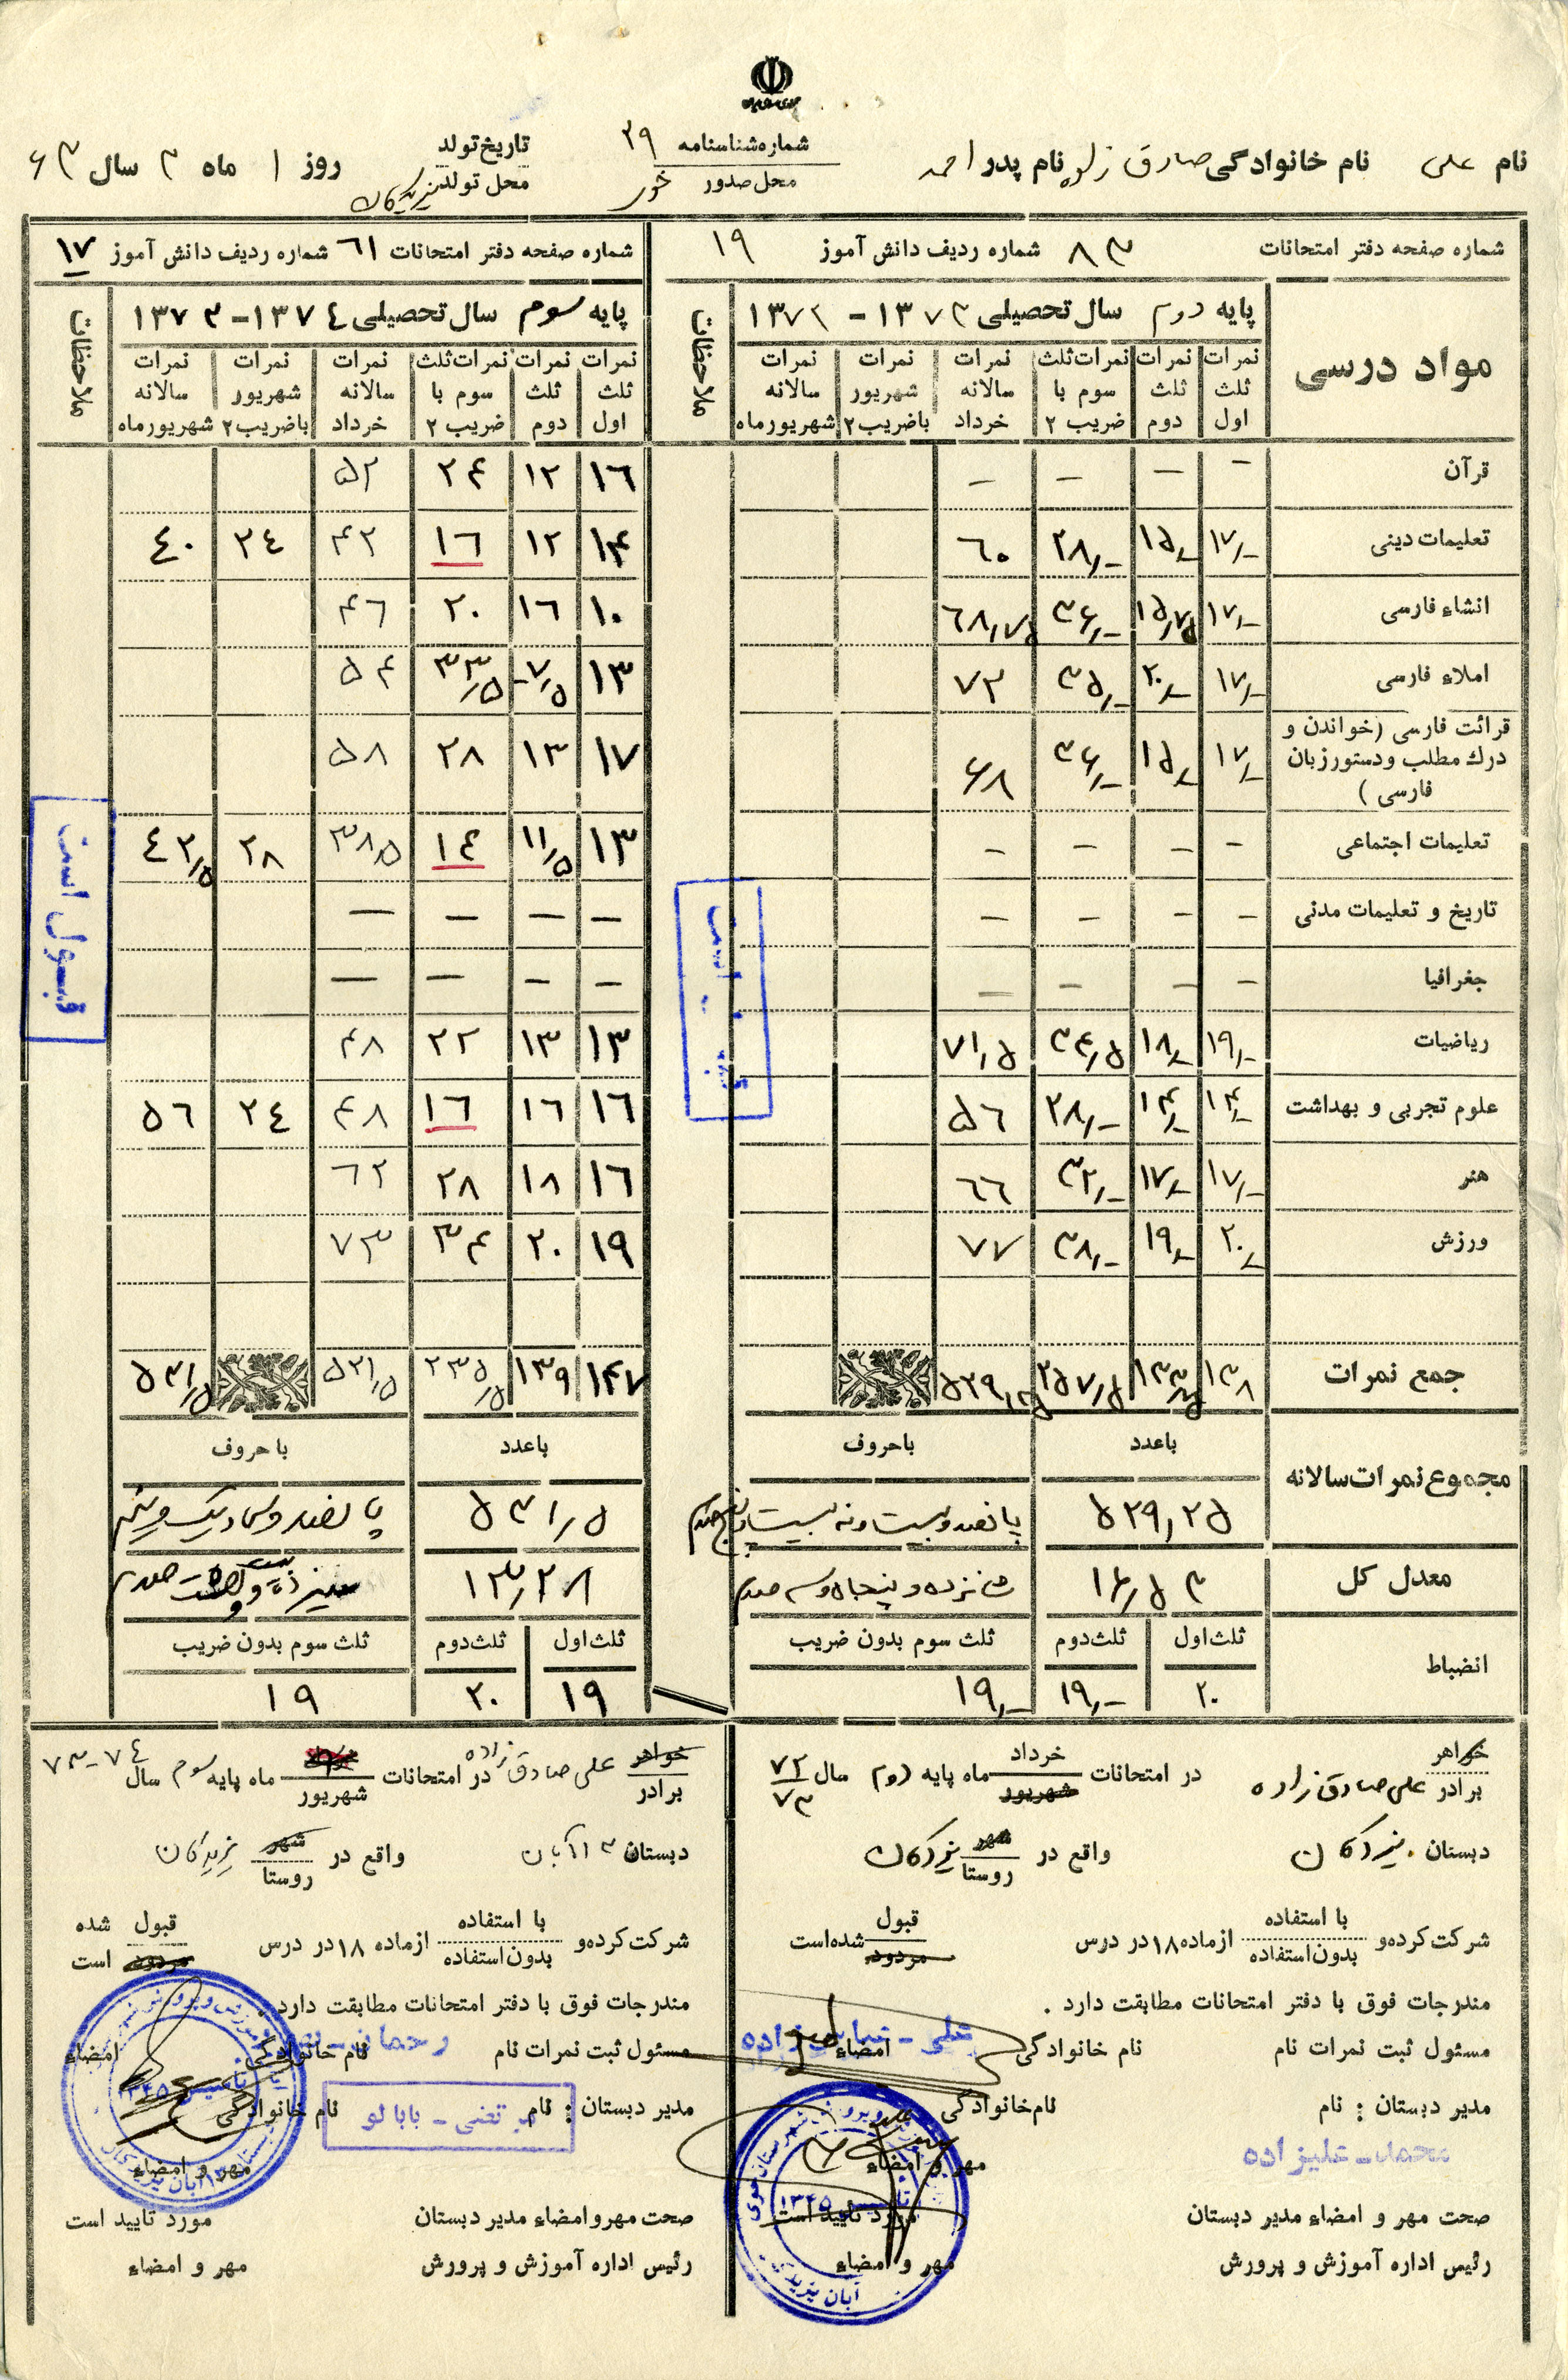 نام علی نام خانوادگی صادق زاده نام پدر احمد
شماره شناسنامه ۲۹
محل صدور خوی
تاریخ تولد روز ۱ ماه ۳ سال ۶۳
محل تولد
شماره صفحه دفتر امتحانات ۸۳ شماره ردیف دانش آموز ۱۹
شماره صفحه دفتر امتحانات ۶۱ شماره ردیف دانش آموز ۱۷
مواد درسی
پایه دوم سال تحصیلی ۱۳۷۳ - ۱۳۷۲ ملاحظات
پایه سوم سال تحصیلی ۱۳۷۴ - ۱۳۷۳ ملاحظات
نمرات ثلث اول نمرات ثلث دوم نمرات ثلث سوم با ضریب ۲ نمرات سالانه خرداد نمرات شهریور باضریب ۲ نمرات سالانه شهریورماه
نمرات ثلث اول نمرات ثلث دوم نمرات ثلث سوم با ضریب ۲ نمرات سالانه خرداد نمرات شهریور باضریب ۲ نمرات سالانه شهریورماه
قرآن - - - - ۱۶ ۱۲ ۲۴ ۵۲
تعلیمات دینی ۱۷/- ۱۵/- ۲۸/- ۶۰ ۱۴ ۱۲ ۱۶ ۴۲ ۲۴ ۴۰
انشاء فارسی ۱۷/- ۱۵/۷۵ ۳۶/- ۶۸/۷۵ ۱۰ ۱۶ ۲۰ ۴۶
املاء فارسی ۱۷/- ۲۰/- ۳۵/- ۷۲ ۱۳ ۷/۵ ۳۳/۵ ۵۴
قرائت فارسی (خواندن و درک مطلب و دستور زبان فارسی) ۱۷/- ۱۵/- ۳۶/- ۶۸ ۱۷ ۱۳ ۲۸ ۵۸
تعلیمات اجتماعی - - - - ۱۳ ۱۱/۵ ۱۴ ۳۸/۵ ۲۸ ۴۲/۵
تاریخ و تعلیمات مدنی - - - - — — — —
جغرافیا - - - - — — — —
ریاضیات ۱۹/- ۱۸/- ۳۴/۵ ۷۱/۵ ۱۳ ۱۳ ۲۲ ۴۸
علوم تجربی و بهداشت ۱۴/- ۱۴/- ۲۸/- ۵۶ ۱۶ ۱۶ ۱۶ ۴۸ ۲۴ ۵۶
هنر ۱۷/- ۱۷/- ۳۲/- ۶۶ ۱۶ ۱۸ ۲۸ ۶۲
ورزش ۲۰/- ۱۹/- ۳۸/- ۷۷ ۱۹ ۲۰ ۳۴ ۷۳
قبول است
جمع نمرات ۱۳۸ ۲۵۷/۵ ۱۴۷ ۱۳۹ ۲۳۵/۵ ۵۲۱/۵ ۵۳۱/۵
مجموع نمرات سالانه باعدد باحروف باعدد باحروف
۵۲۹/۲۵ پانصد و بیست و نه بیست و پنج صدم ۵۳۱/۵ پانصد و سی و یک و نیم
معدل کل ۱۶/۵۳ شانزده و پنجاه و سه صدم ۱۳/۲۸ سیزده و بیست و هشت صدم
انضباط ثلث اول ثلث دوم ثلث سوم بدون ضریب ثلث اول ثلث دوم ثلث سوم بدون ضریب
۲۰ ۱۹/- ۱۹/- ۱۹ ۲۰ ۱۹
خواهر برادر علی صادق زاده در امتحانات خرداد شهریور ماه پایه دوم سال ۷۲ ۷۳
دبستان واقع در شهر روستا
شرکت کرده و با استفاده بدون استفاده از ماده ۱۸ در درس قبول مردود شده است
مندرجات فوق با دفتر امتحانات مطابقت دارد .
مسئول ثبت نمرات نام نام خانوادگی امضاء
مدیر دبستان : نام نام خانوادگی
محمد - علیزاده
مهر و امضاء
صحت مهر و امضاء مدیر دبستان مورد تایید است
رئیس اداره آموزش و پرورش مهر و امضاء
خواهر برادر علی صادق زاده در امتحانات شهریور ماه پایه سوم سال ۷۴-۷۳
دبستان ۱۳ آبان واقع در شهر روستا
شرکت کرده و با استفاده بدون استفاده از ماده ۱۸ در درس قبول مردود شده است
مندرجات فوق با دفتر امتحانات مطابقت دارد .
مسئول ثبت نمرات نام نام خانوادگی امضاء
مدیر دبستان : نام نام خانوادگی
مرتضی - بابالو
مهر و امضاء
صحت مهر و امضاء مدیر دبستان مورد تایید است
رئیس اداره آموزش و پرورش مهر و امضاء